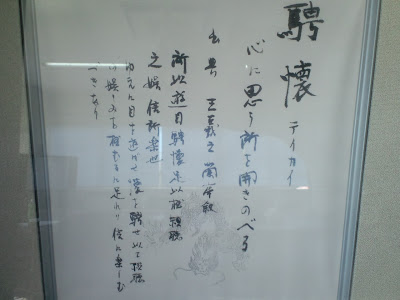 騁懐
テイカイ
心に思う所を開きのべる
出典 王羲之 蘭亭叙
所以遊目騁懐足以極視聴
之娯信可楽也
ゆえん目を遊ばせ懐を騁せ以て視聴
娯しみを極むるに足れり信に楽しむ
べきなり